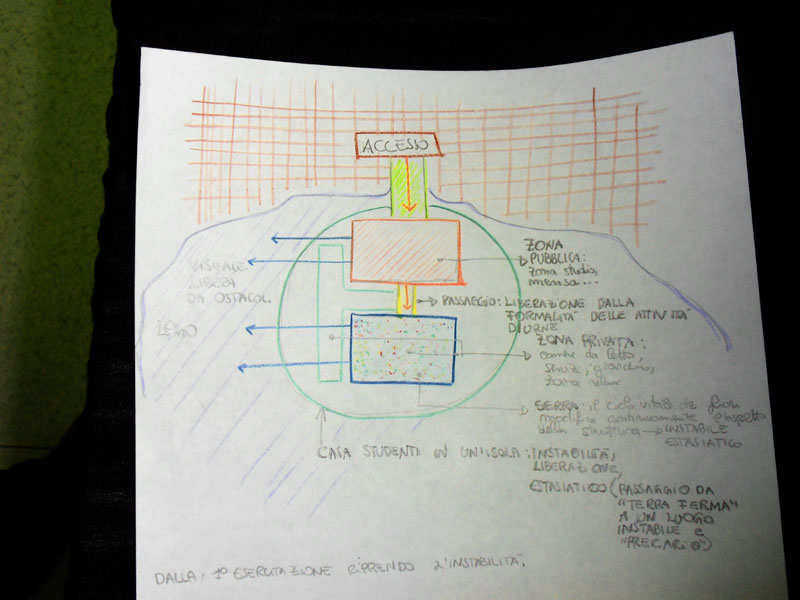 ACCESSO
ZONA
PUBBLICA:
zona studio,
mensa...
VISUALE
LIBERA
DA OSTACOLI
PASSAGGIO: LIBERAZIONE DALLA
FORMALITÀ DELLE ATTIVITÀ
DIURNE
ZONA PRIVATA:
camere da letto,
giardino,
zona relax
SERRA: il ciclo vitale dei fiori
modifica continuamente l'aspetto
della struttura → INSTABILE
ESTASIATICO
CASA STUDENTI IN UN'ISOLA: INSTABILITÀ,
LIBERAZIONE,
ESTASIATICO (PASSAGGIO DA
"TERRA FERMA"
A UN LUOGO
INSTABILE E
"PRECARIO")
DALLA: 1° ESERCITAZIONE RIPRENDO L'INSTABILITÀ.